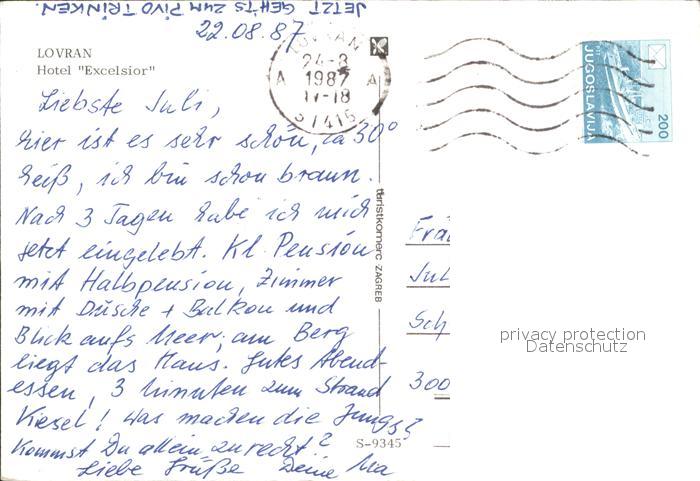 JETZT GEHTS ZUM PIVO TRINKEN.
22.08.87
LOVRAN
Hotel "Excelsior"
LOVRAN
24-8
1987
A A
17-18
51415
JUGOSLAVIJA
200
Liebste Juli,
hier ist es sehr schön, ca 30°
heiß, ich bin schon braun.
Nach 3 Tagen habe ich mich
jetzt eingelebt. Kl. Pension
mit Halbpension, Zimmer
mit Dusche + Balkon und
Blick aufs Meer, am Berg
liegt das Haus. Gutes Abend-
essen, 3 Minuten zum Strand
Kiesel! Was machen die Jungs?
Kommst Du allein zurecht?
Liebe Grüße Deine Ma
turistkomerc ZAGREB
S-9345
Frä
Jul
Sch
300
privacy protection
Datenschutz